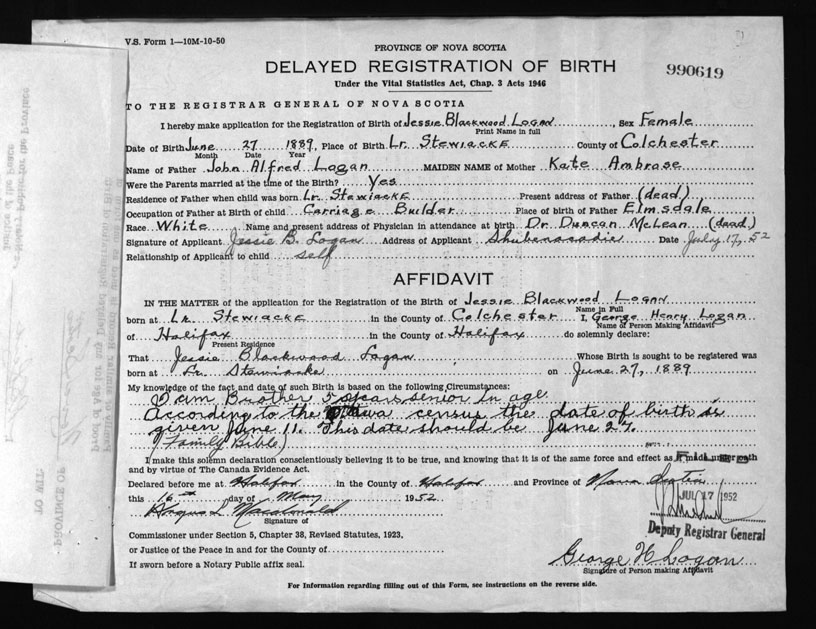 V.S. Form 1—10M-10-50
PROVINCE OF NOVA SCOTIA
DELAYED REGISTRATION OF BIRTH
990619
Under the Vital Statistics Act, Chap. 3 Acts 1946
TO THE REGISTRAR GENERAL OF NOVA SCOTIA
I hereby make application for the Registration of Birth of Jessie Blackwood Logan, Sex Female
Print Name in full
Date of Birth June 27 1889, Place of Birth Lr. Stewiacke County of Colchester
Month Date Year
Name of Father John Alfred Logan MAIDEN NAME of Mother Kate Ambrose
Were the Parents married at the time of the Birth? Yes
Residence of Father when child was born Lr. Stewiacke Present address of Father (dead)
Occupation of Father at Birth of child Carriage Builder Place of birth of Father Elmsdale
Race White Name and present address of Physician in attendance at birth Dr. Duncan McLean (dead)
Signature of Applicant Jessie B. Logan Address of Applicant Shubenacadie Date July 17, 52
Relationship of Applicant to child self
AFFIDAVIT
IN THE MATTER of the application for the Registration of the Birth of Jessie Blackwood Logan
Name in Full
born at Lr. Stewiacke in the County of Colchester I, George Henry Logan
Name of Person Making Affidavit
of Halifax in the County of Halifax do solemnly declare:
Present Residence
That Jessie Blackwood Logan Whose Birth is sought to be registered was
born at Lr. Stewiacke on June 27, 1889
My knowledge of the fact and date of such Birth is based on the following Circumstances:
I am Brother 5 years senior in age.
According to the census the date of birth is
given June 11. This date should be June 27.
(Family Bible)
I make this solemn declaration conscientiously believing it to be true, and knowing that it is of the same force and effect as if made under oath
and by virtue of The Canada Evidence Act.
FILED
Declared before me at Halifax in the County of Halifax and Province of Nova Scotia
this 16th day of May 1952
JUL 17 1952
Angus L Macdonald
Signature of
Deputy Registrar General
Commissioner under Section 5, Chapter 38, Revised Statutes, 1923,
or Justice of the Peace in and for the County of
George H Logan
Signature of Person making Affidavit
If sworn before a Notary Public affix seal.
For Information regarding filling out of this Form, see instructions on the reverse side.